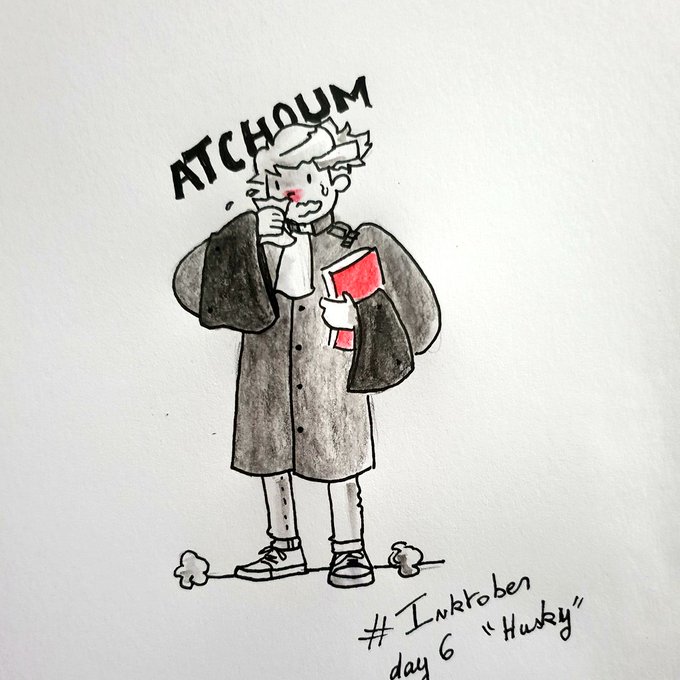 ATCHOUM
# Inktober
day 6 "Husky"